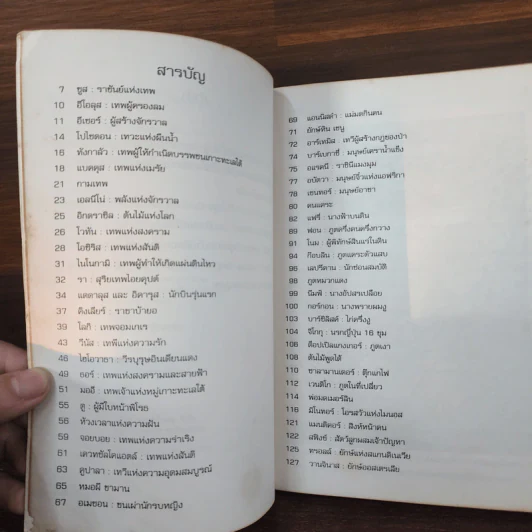 สารบัญ
7 ซูส : ราชันย์แห่งเทพ
10 อีโอลุส : เทพผู้ครองลม
11 อีเซอร์ : ผู้สร้างจักรวาล
14 โปไซดอน : เทวะแห่งผืนน้ำ
16 ทังกาลัว : เทพผู้ให้กำเนิดบรรพชนเกาะทะเลใต้
18 แบคคุส : เทพแห่งเมรัย
21 กามเทพ
23 เอลนีโน่ : พลังแห่งจักรวาล
25 อิกดราซิล : ต้นไม้แห่งโลก
26 โวทัน : เทพแห่งสงคราม
28 โอซิริส : เทพแห่งสันติ
31 ไนโนกามิ : เทพผู้ทำให้เกิดแผ่นดินไหว
32 รา : สุริยเทพไอยคุปต์
34 แดดาลุส และ อิคารุส : นักบินรุ่นแรก
37 คิงเลียร์ : ราชาบ้ายอ
39 โลกิ : เทพจอมเกเร
43 วีนัส : เทพีแห่งความรัก
46 ไฮโอวาธา : วีรบุรุษอินเดียนแดง
49 ธอร์ : เทพแห่งสงครามและสายฟ้า
51 มออี : เทพเจ้าแห่งหมู่เกาะทะเลใต้
55 ฮู : ผู้มีใบหน้าพิโรธ
56 ห้วงเวลาแห่งความฝัน
59 จอยบอย : เทพแห่งความร่าเริง
61 เควทซัลโคแอตล์ : เทพแห่งสันติ
63 คูปาลา : เทวีแห่งความอุดมสมบูรณ์
65 หมอผี ชามาน
67 อเมซอน : ชนเผ่านักรบหญิง
69 แอนนิสต์ว่า : แม่มดกินคน
71 ยักษ์หิน เซนู
72 อาร์เทมิส : เทวีผู้สร้างกฎของป่า
74 บาร์เบกาซี่ : มนุษย์เคราน้ำแข็ง
75 อแรคนี่ : ราชินีแมงมุม
77 อบัตวา : มนุษย์จิ๋วแห่งแอฟริกา
78 เซนทอร์ : มนุษย์อาชา
80 คนแคระ
82 แฟรี่ : นางฟ้าบนดิน
89 ฟอน : ภูตครึ่งคนครึ่งกวาง
91 โนม : ผู้พิทักษ์สินแร่ในดิน
94 ก๊อบลิน : ภูตแคระตัวแสบ
96 เลปรีคาน : นักซ่อนสมบัติ
98 ภูตหมวกแดง
99 นิมฟ์ : นางอัปสรเปลือย
100 กอร์กอน : นางพรายผมงู
102 บาร์ซิลิสค์ : ไก่ครึ่งงู
104 จิโกกุ : นรกญี่ปุ่น 16 ขุม
106 ด็อปเปิลแกงเกอร์ : ภูตเงา
108 ต้นไม้พูดได้
110 ซาลามานเดอร์ : ตุ๊กแกไฟ
112 เวนดิโก : ภูตในที่เปลี่ยว
114 ฟอมดเมอร์ลิน
116 มิโนทอร์ : โอรสวัวแห่งไมนอส
121 แมนติคอร์ : สิงห์หน้าคน
122 สฟิงซ์ : สัตว์ลูกผสมเจ้าปัญหา
125 ทรอลล์ : ยักษ์แห่งสแกนดิเนเวีย
127 วานจินาส : ยักษ์ออสเตรเลีย